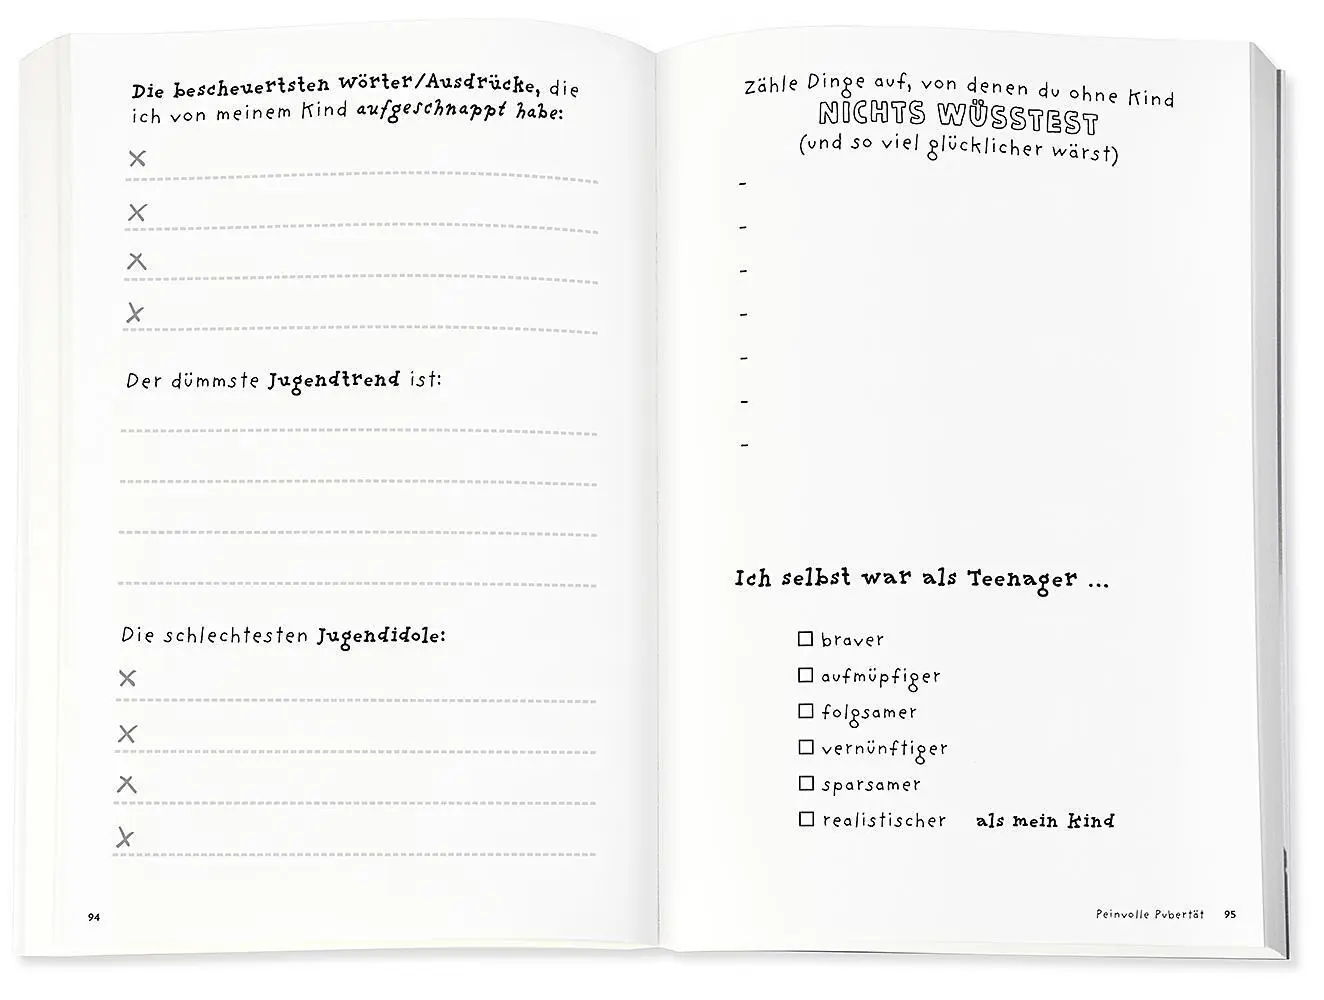 Die bescheuertsten Wörter/Ausdrücke, die
ich von meinem Kind aufgeschnappt habe:
x
x
x
x
Der dümmste Jugendtrend ist:
Die schlechtesten Jugendidole:
x
x
x
x
94
Zähle Dinge auf, von denen du ohne Kind
NICHTS WÜSSTEST
(und so viel glücklicher wärst)
-
-
-
-
-
-
-
Ich selbst war als Teenager ...
☐ braver
☐ aufmüpfiger
☐ folgsamer
☐ vernünftiger
☐ sparsamer
☐ realistischer als mein Kind
Peinvolle Pubertät 95